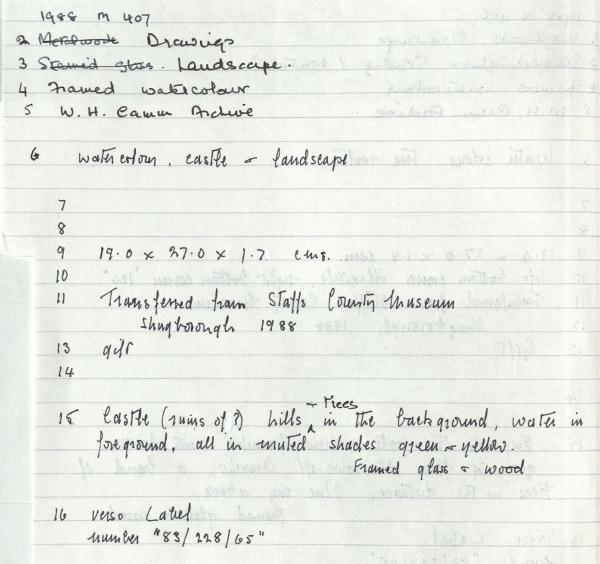 1988 M 407
2 Metalwork Drawings
3 Stained glass. Landscape.
4 Framed watercolour
5 W. H. Camm Archive
6 watercolour, castle & landscape
7
8
9 19.0 x 27.0 x 1.7 cms.
10
11 Transferred from Staffs County Museum
Shugborough 1988
13 gift
14
& trees
15 Castle (ruins of?) hills ^ in the background, water in
foreground, all in muted shades green & yellow.
Framed glass & wood
16 verso Label
number "83/228/65"